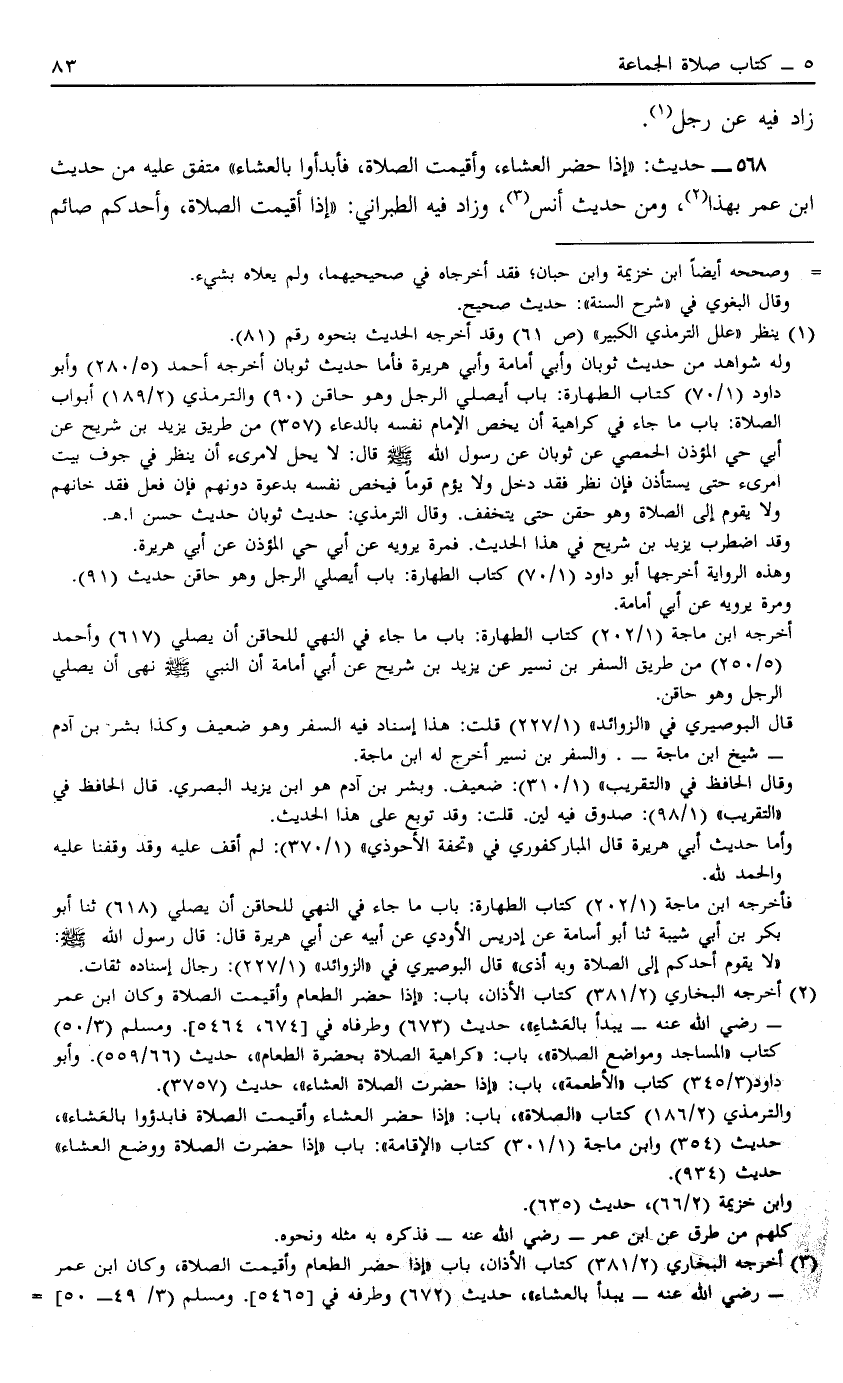 ٥ ــ كتاب صلاة الجماعة ٨٣
زاد فيه عن رجل(١).
٥٦٨ ــ حديث: «إذا حضر العشاء، وأقيمت الصلاة، فأبدأوا بالعشاء» متفق عليه من حديث
ابن عمر بهذا(٢)، ومن حديث أنس(٣)، وزاد فيه الطبراني: «إذا أقيمت الصلاة، وأحدكم صائم
= وصححه أيضاً ابن خزيمة وابن حبان؛ فقد أخرجاه في صحيحيهما، ولم يعلاه بشيء.
وقال البغوي في «شرح السنة»: حديث صحيح.
(١) ينظر «علل الترمذي الكبير» (ص ٦١) وقد أخرجه الحديث بنحوه رقم (٨١).
وله شواهد من حديث ثوبان وأبي أمامة وأبي هريرة فأما حديث ثوبان أخرجه أحمد (٢٨٠/٥) وأبو
داود (٧٠/١) كتاب الطهارة: باب أيصلي الرجل وهو حاقن (٩٠) والترمذي (١٨٩/٢) أبواب
الصلاة: باب ما جاء في كراهية أن يخص الإمام نفسه بالدعاء (٣٥٧) من طريق يزيد بن شريح عن
أبي حي المؤذن الحمصي عن ثوبان عن رسول الله ﷺ قال: لا يحل لامرىء أن ينظر في جوف بيت
امرىء حتى يستأذن فإن نظر فقد دخل ولا يؤم قوماً فيخص نفسه بدعوة دونهم فإن فعل فقد خانهم
ولا يقوم إلى الصلاة وهو حقن حتى يتخفف. وقال الترمذي: حديث ثوبان حديث حسن ا.هـ.
وقد اضطرب يزيد بن شريح في هذا الحديث. فمرة يرويه عن أبي حي المؤذن عن أبي هريرة.
وهذه الرواية أخرجها أبو داود (٧٠/١) كتاب الطهارة: باب أيصلي الرجل وهو حاقن حديث (٩١).
ومرة يرويه عن أبي أمامة.
أخرجه ابن ماجة (٢٠٢/١) كتاب الطهارة: باب ما جاء في النهي للحاقن أن يصلي (٦١٧) وأحمد
(٢٥٠/٥) من طريق السفر بن نسير عن يزيد بن شريح عن أبي أمامة أن النبي ﷺ نهى أن يصلي
الرجل وهو حاقن.
قال البوصيري في «الزوائد» (٢٢٧/١) قلت: هذا إسناد فيه السفر وهو ضعيف وكذا بشر بن آدم
ــ شيخ ابن ماجة ــ . والسفر بن نسير أخرج له ابن ماجة.
وقال الحافظ في «التقريب» (٣١٠/١): ضعيف. وبشر بن آدم هو ابن يزيد البصري. قال الحافظ في
«التقريب» (٩٨/١): صدوق فيه لين. قلت: وقد توبع على هذا الحديث.
وأما حديث أبي هريرة قال المباركفوري في «تحفة الأحوذي» (٣٧٠/١): لم أقف عليه وقد وقفنا عليه
والحمد لله.
فأخرجه ابن ماجة (٢٠٢/١) كتاب الطهارة: باب ما جاء في النهي للحاقن أن يصلي (٦١٨) ثنا أبو
بكر بن أبي شيبة ثنا أبو أسامة عن إدريس الأودي عن أبيه عن أبي هريرة قال: قال رسول الله ﷺ:
«لا يقوم أحدكم إلى الصلاة وبه أذى» قال البوصيري في «الزوائد» (٢٢٧/١): رجال إسناده ثقات.
(٢) أخرجه البخاري (٣٨١/٢) كتاب الأذان، باب: «إذا حضر الطعام وأقيمت الصلاة وكان ابن عمر
ــ رضي الله عنه ــ يبدأ بالعَشاءِ»، حديث (٦٧٣) وطرفاه في [٦٧٤، ٥٤٦٤]. ومسلم (٥٠/٣)
كتاب «المساجد ومواضع الصلاة»، باب: «كراهية الصلاة بحضرة الطعام»، حديث (٥٥٩/٦٦). وأبو
داود(٣٤٥/٣) كتاب «الأطعمة»، باب: «إذا حضرت الصلاة العشاء»، حديث (٣٧٥٧).
والترمذي (١٨٦/٢) كتاب «الصلاة»، باب: «إذا حضر العشاء وأقيمت الصلاة فابدؤوا بالعَشاء»،
حديث (٣٥٤) وابن ماجة (٣٠١/١) كتاب «الإقامة»: باب «إذا حضرت الصلاة ووضع العشاء»
حديث (٩٣٤).
وابن خزيمة (٦٦/٢)، حديث (٦٣٥).
كلهم من طرق عن ابن عمر ــ رضي الله عنه ــ فذكره به مثله ونحوه.
(٣) أخرجه البخاري (٣٨١/٢) كتاب الأذان، باب «إذا حضر الطعام وأقيمت الصلاة، وكان ابن عمر
ــ رضي الله عنه ــ يبدأ بالعشاء»، حديث (٦٧٢) وطرفه في [٥٤٦٥]. ومسلم (٣/ ٤٩ــ ٥٠] =